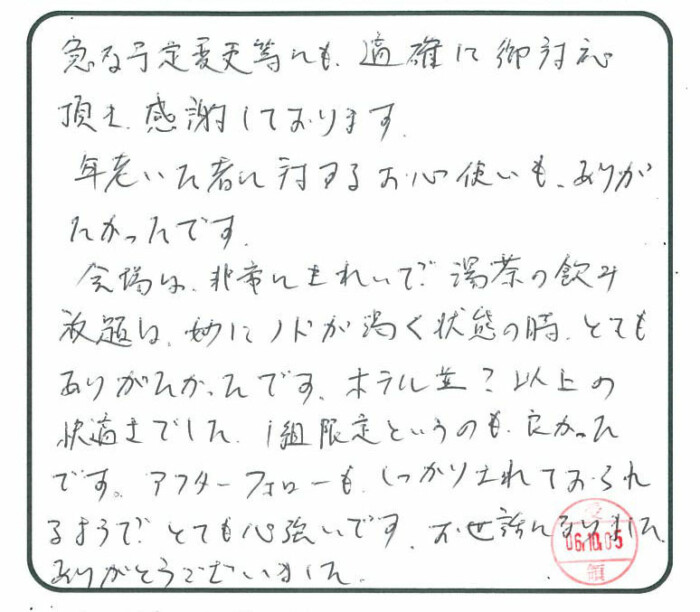 急な予定変更等にも、適確に御対応
頂き、感謝しております。
年老いた者に対するお心使いも、ありが
たかったです。
会場は、非常にきれいで、湯茶の飲み
放題は、妙にノドが渇く状態の時、とても
ありがたかったです。ホテル並?以上の
快適さでした。1組限定というのも、良かった
です。アフターフォローも、しっかりされておられ
るようで、とても心強いです。お世話になりました
ありがとうございました。
受
06.10.05
領